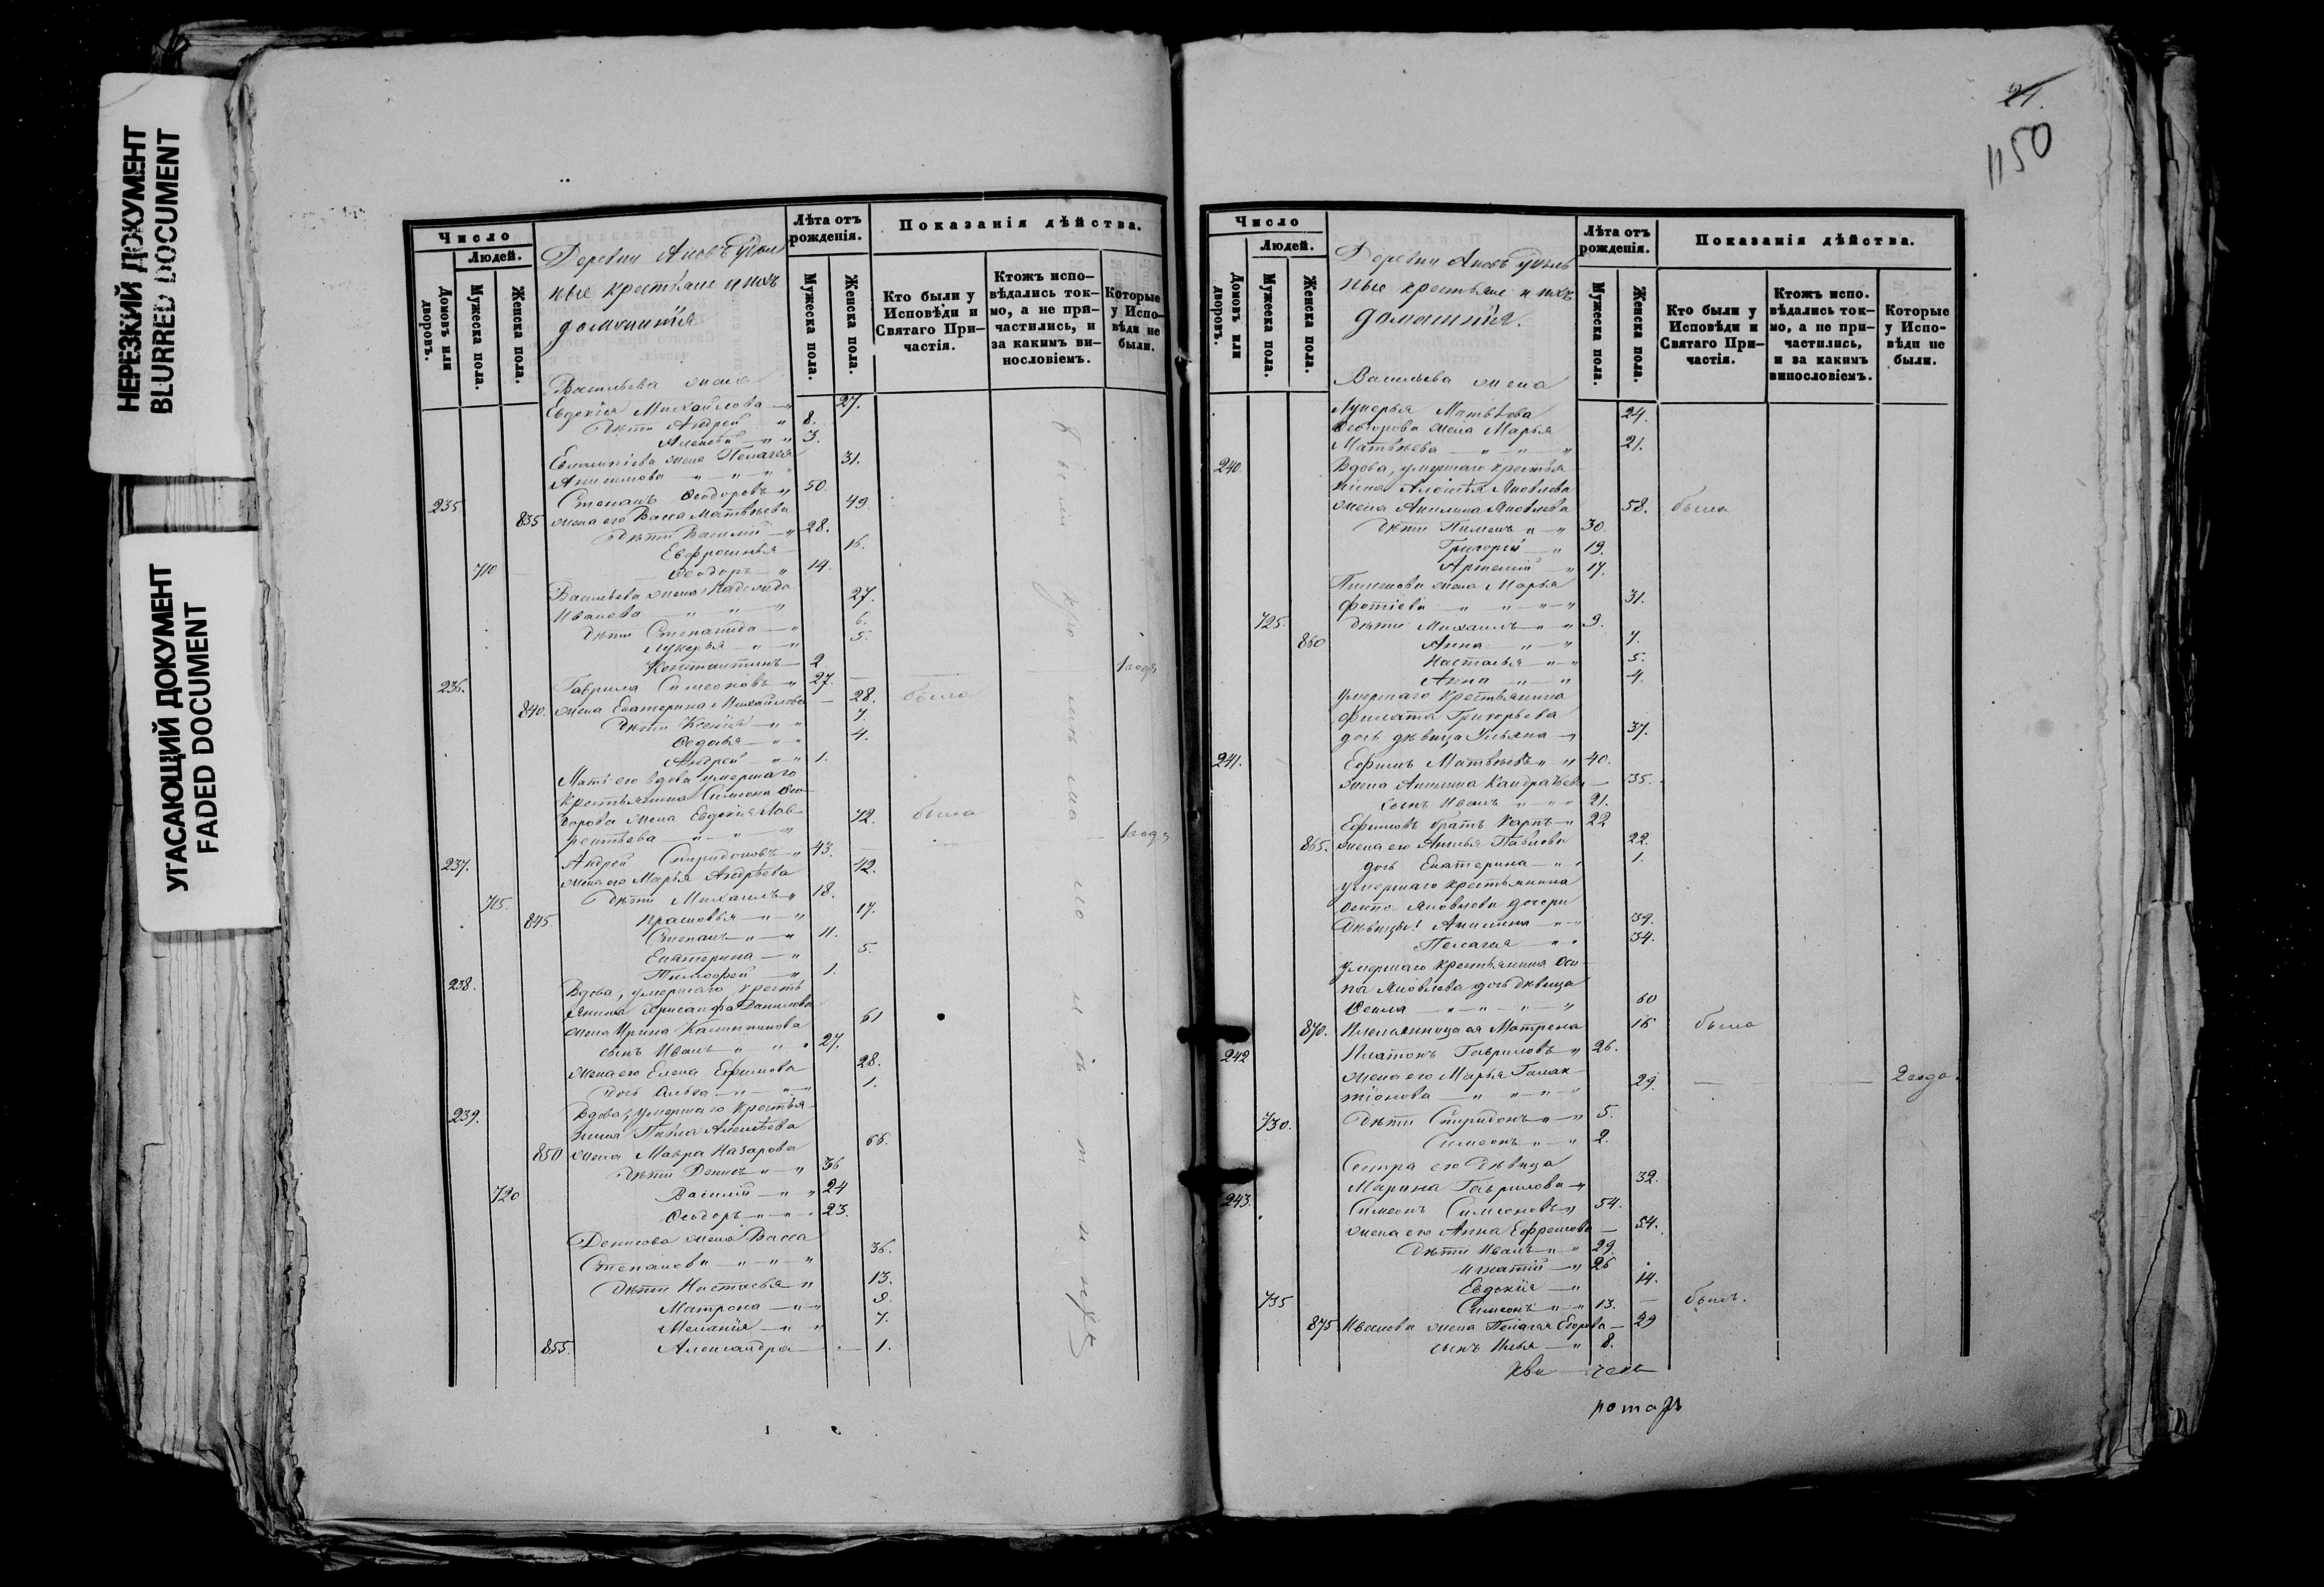 НЕРЕЗКИЙ ДОКУМЕНТ
BLURRED DOCUMENT
УГАСАЮЩИЙ ДОКУМЕНТ
FADED DOCUMENT
Число
Людей.
Домовъ или дворовъ.
Мужеска пола.
Женска пола.
Деревни
ные крестьяне и ихъ
домашнія
Лѣта отъ рожденія.
Мужеска пола.
Женска пола.
Показанія дѣйства.
Кто были у Исповѣди и Святаго При-частія.
Ктожъ испо-вѣдались ток-мо, а не при-частились, и за какимъ ви-нословіемъ.
Которые у Испо-вѣди не были.
Васильева жена
Евдокія Михайлова 27.
Дѣти Андрей 8.
Алексѣй 3.
жена Пелагея
Анисимова 31.
235 Степанъ Ѳеодоровъ 50.
835 жена его Васса Матвѣева 49.
Дѣти Василій 28.
Евфросинья 16.
710 Ѳеодоръ 14.
Васильева жена Надежда
Иванова 27.
Дѣти Степанида 6.
Лукерья 5.
Константинъ 2.
236. Гаврила Симеоновъ 27. 1 годъ
840. жена Екатерина Михайлова 28. была
Дѣти Ксенія 7.
Ѳедосья 4.
Андрей 1.
Мать его вдова умершаго
крестьянина Симеона Ѳео-
дорова жена Евдокія Лав-
рентьева 72. была
237. Андрей Спиридоновъ 43. 1 годъ
жена его Марья Андрѣева 42.
715. Дѣти Михаилъ 18.
845. Прасковья 17.
Степанъ 11.
Екатерина 5.
Тимофей 1.
238. Вдова, умершаго кресть
янина Хрисанфа Данилова
жена Ирина Калинникова 61
сынъ Иванъ 27.
жена его Елена Ефимова 28.
дочь Ольга 1.
239. Вдова, умершаго крестья-
нина Павла Алексѣева
850 жена Мавра Назарова 66.
Дѣти Денисъ 36
720 Василій 24
Ѳеодоръ 23.
Денисова жена Васса
Степанова 36.
Дѣти Настасья 13.
Матрона 9.
Меланія 7.
855. Александра 1.
24.
1150
Число
Людей.
Домовъ или дворовъ.
Мужеска пола.
Женска пола.
Деревни
ные крестьяне и ихъ
домашнія.
Лѣта отъ рожденія.
Мужеска пола.
Женска пола.
Показанія дѣйства.
Кто были у Исповѣди и Святаго При-частія.
Ктожъ испо-вѣдались ток-мо, а не при-частились, и за какимъ винословіемъ.
Которые у Испо-вѣди не были.
Васильева жена
Лукерья Матвѣева 24.
Ѳеодорова жена Марья
Матвѣева 21.
240. Вдова, умершаго крестья
нина Алексѣя Яковлева
жена Акилина Яковлева 58. была
Дѣти Пименъ 30.
Григорій 19.
Артемій 17.
Пименова жена Марья
Фотіева 31.
725. Дѣти Михаилъ 9.
860 Анна 7.
Настасья 5.
Анна 4.
умершаго крестьянина
Филата Григорьева
дочь дѣвица Ульяна 37.
241. Ефимъ Матвѣевъ 40.
жена Акилина 35.
сынъ Иванъ 21.
Ефимовъ братъ Карпъ 22
865. жена его Павлова 22.
дочь Екатерина 1.
умершаго крестьянина
Яковлева дочери
Дѣвицы: Акилина 39.
Пелагея 34.
умершаго крестьянина Оси
па Яковлева дочь дѣвица
Ѳекла 60
870. Племянница ея Матрена 16 была
242 Платонъ Гавриловъ 26.
жена его Марья Галак-
тіонова 29. 2 года.
730. Дѣти Спиридонъ 5.
Симеонъ 2.
Сестра его дѣвица
Марина Гаврилова 32.
243. Симеонъ Симеоновъ 54.
жена его Анна Ефремова 54.
Дѣти Иванъ 29.
Игнатій 26
Евдокія 14.
735 Симеонъ 13. былъ.
875 Иванова жена Пелагея Егорова 29
сынъ Илья 8.